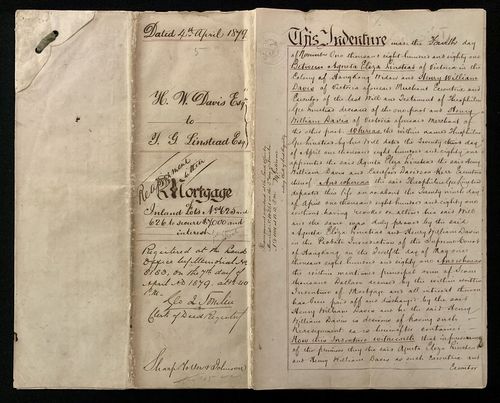 Dated 4th April 1879
H. W. Davis Esq
to
T. G. Linstead Esq
Reassignment within
Mortgage
of
Inland Lots Nos 623 and
626 to secure $7000 and
interest
Registered at the Land
Office by Memorial No
on the 7th day of
April AD 1879, at
P.M.
Clerk of Deed Registry
Sharp Toller & Johnson
This Indenture made the Fourth day
of November One thousand eight hundred and eighty one
Between Agneta Eliza Linstead of Victoria in the
Colony of Hongkong Widow and Henry William
Davis of Victoria aforesaid Merchant Executrix and
Executor of the last Will and Testament of Theophilus
Gee Linstead deceased of the one part and Henry
William Davis of Victoria aforesaid Merchant of
the other part Whereas the within named Theophilus
Gee Linstead by his Will dated the Twenty third day
of April One thousand eight hundred and eighty one
appointed the said Agneta Eliza Linstead the said Henry
William Davis and
thereof And whereas the said Theophilus Gee Linstead
departed this life on or about the Twenty ninth day
of April One thousand eight hundred and eighty one
without having revoked or altered his said Will
and the same was duly proved by the said
Agneta Eliza Linstead and Henry William Davis
in the Probate Jurisdiction of the Supreme Court
of Hongkong on the Twelfth day of May One
thousand eight hundred and eighty one And whereas
the within mentioned principal sum of Seven
thousand Dollars secured by the within written
Indenture of Mortgage and all interest thereon
has been paid off and discharged by the said
Henry William Davis and he the said Henry
William Davis is desirous of having such
Reassignment as is hereinafter contained
Now this Indenture witnesseth that in pursuance
of the premises they the said Agneta Eliza Linstead
and Henry William Davis as such Executrix and
Executor